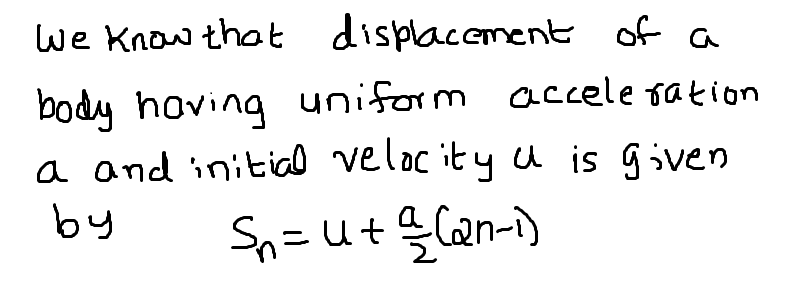 We know that displacement of a
body having uniform acceleration
a and initial velocity u is given
by Sₙ = u + a/2 (2n-1)